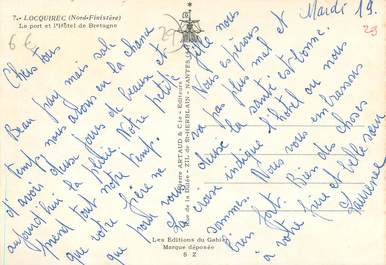 7. - LOCQUIREC (Nord-Finistère)
Le port et l'Hôtel de Bretagne
6 €
29
Mardi 19.
29
Chers tous
Beau pays mais sale
temps nous avons eu la chance
d'avoir deux jours de beaux et
aujourd'hui la pluie. Notre petite fille nous
prend tout notre temps
que votre frère ne
que pour vous
Nous espérons
va pas plus mal et
que la santé est bonne.
La croix indique l'hôtel où nous
sommes. Nous vous embrassons
bien fort. Bien des choses
à votre frère et belle soeur
Laurence
Pierre ARTAUD & Cie - Editeurs
Rue de la Dutée - ZIL de St-HERBLAIN - NANTES
Les Editions du Gabier
Marque déposée
S Z